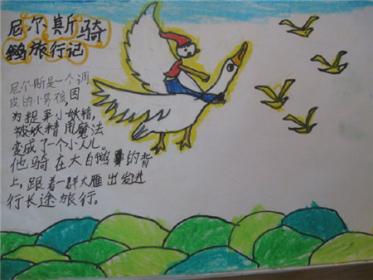 尼尔斯骑
鹅旅行记
尼尔斯是一个调
皮的小男孩因
为捉弄小妖精,
被妖精用魔法
变成了一个小人儿。
他骑在大白鹅的背
上,跟着一群大雁出发进
行长途旅行。